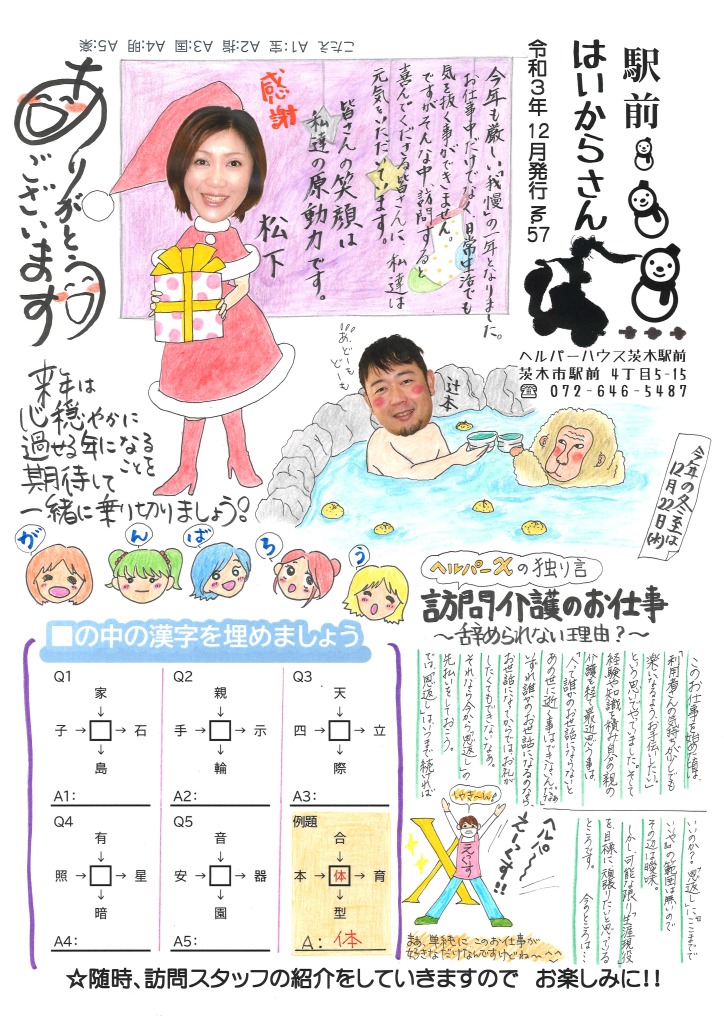 駅前
はいからさん
令和3年12月発行 №57
ヘルパーハウス茨木駅前
茨木市駅前 4丁目5-15
☎ 072-646-5487
こたえ A1:宝 A2:指 A3:国 A4:明 A5:楽
今年も厳しい「我慢」の一年となりました。
お仕事中だけでなく、日常生活でも
気を抜く事ができません。
ですがそんな中、訪問すると
喜んでくださる皆さんに、私達は
元気をいただいています。
皆さんの笑顔は
私達の原動力です。
松下
感謝
ありがとう
ございます
来年は
心穏やかに
過せる年になる
ことを
期待して
一緒に乗り切りましょう!
あ、どーも
どーも
辻本
今年の冬至は
12月22日(水)
がんばろう
ヘルパーXの独り言
訪問介護のお仕事
～辞められない理由?～
このお仕事を始めた頃は、
「利用者さんの気持ちが少しでも
楽になるようお手伝いしたい」
という思いでやっていました。そして
経験や知識を積み、自分の親の
介護を経て最近思う事は、
「人って誰かのお世話にならないと
あの世に逝く事はできないんだなぁ」
いずれ誰かのお世話になるのなら、
お世話になってからではお礼が
したくてもできないなぁ。
それなら今から「恩返し」の
先払いをしておこう。
では、「恩返し」はいつまで続ければ
いいのか?「恩返し」に"ここまでで
いいや"の範囲は無いので
その辺は曖昧。
しかし、可能な限り「生涯現役」
を目標に、頑張りたいと思っている
ところです。 今のところは…
しゃきーん!
えっくす
X
ヘルパー
えーっくす!!
まぁ、単純に このお仕事が
好きなだけなんですけどね～～～
■の中の漢字を埋めましょう
Q1
家
↓
子 → □ → 石
↓
島
A1:
Q2
親
↓
手 → □ → 示
↓
輪
A2:
Q3
天
↓
四 → □ → 立
↓
際
A3:
Q4
有
↓
照 → □ → 星
↓
暗
A4:
Q5
音
↓
安 → □ → 器
↓
園
A5:
例題
合
↓
本 → 体 → 育
↓
型
A: 体
☆随時、訪問スタッフの紹介をしていきますので お楽しみに!!